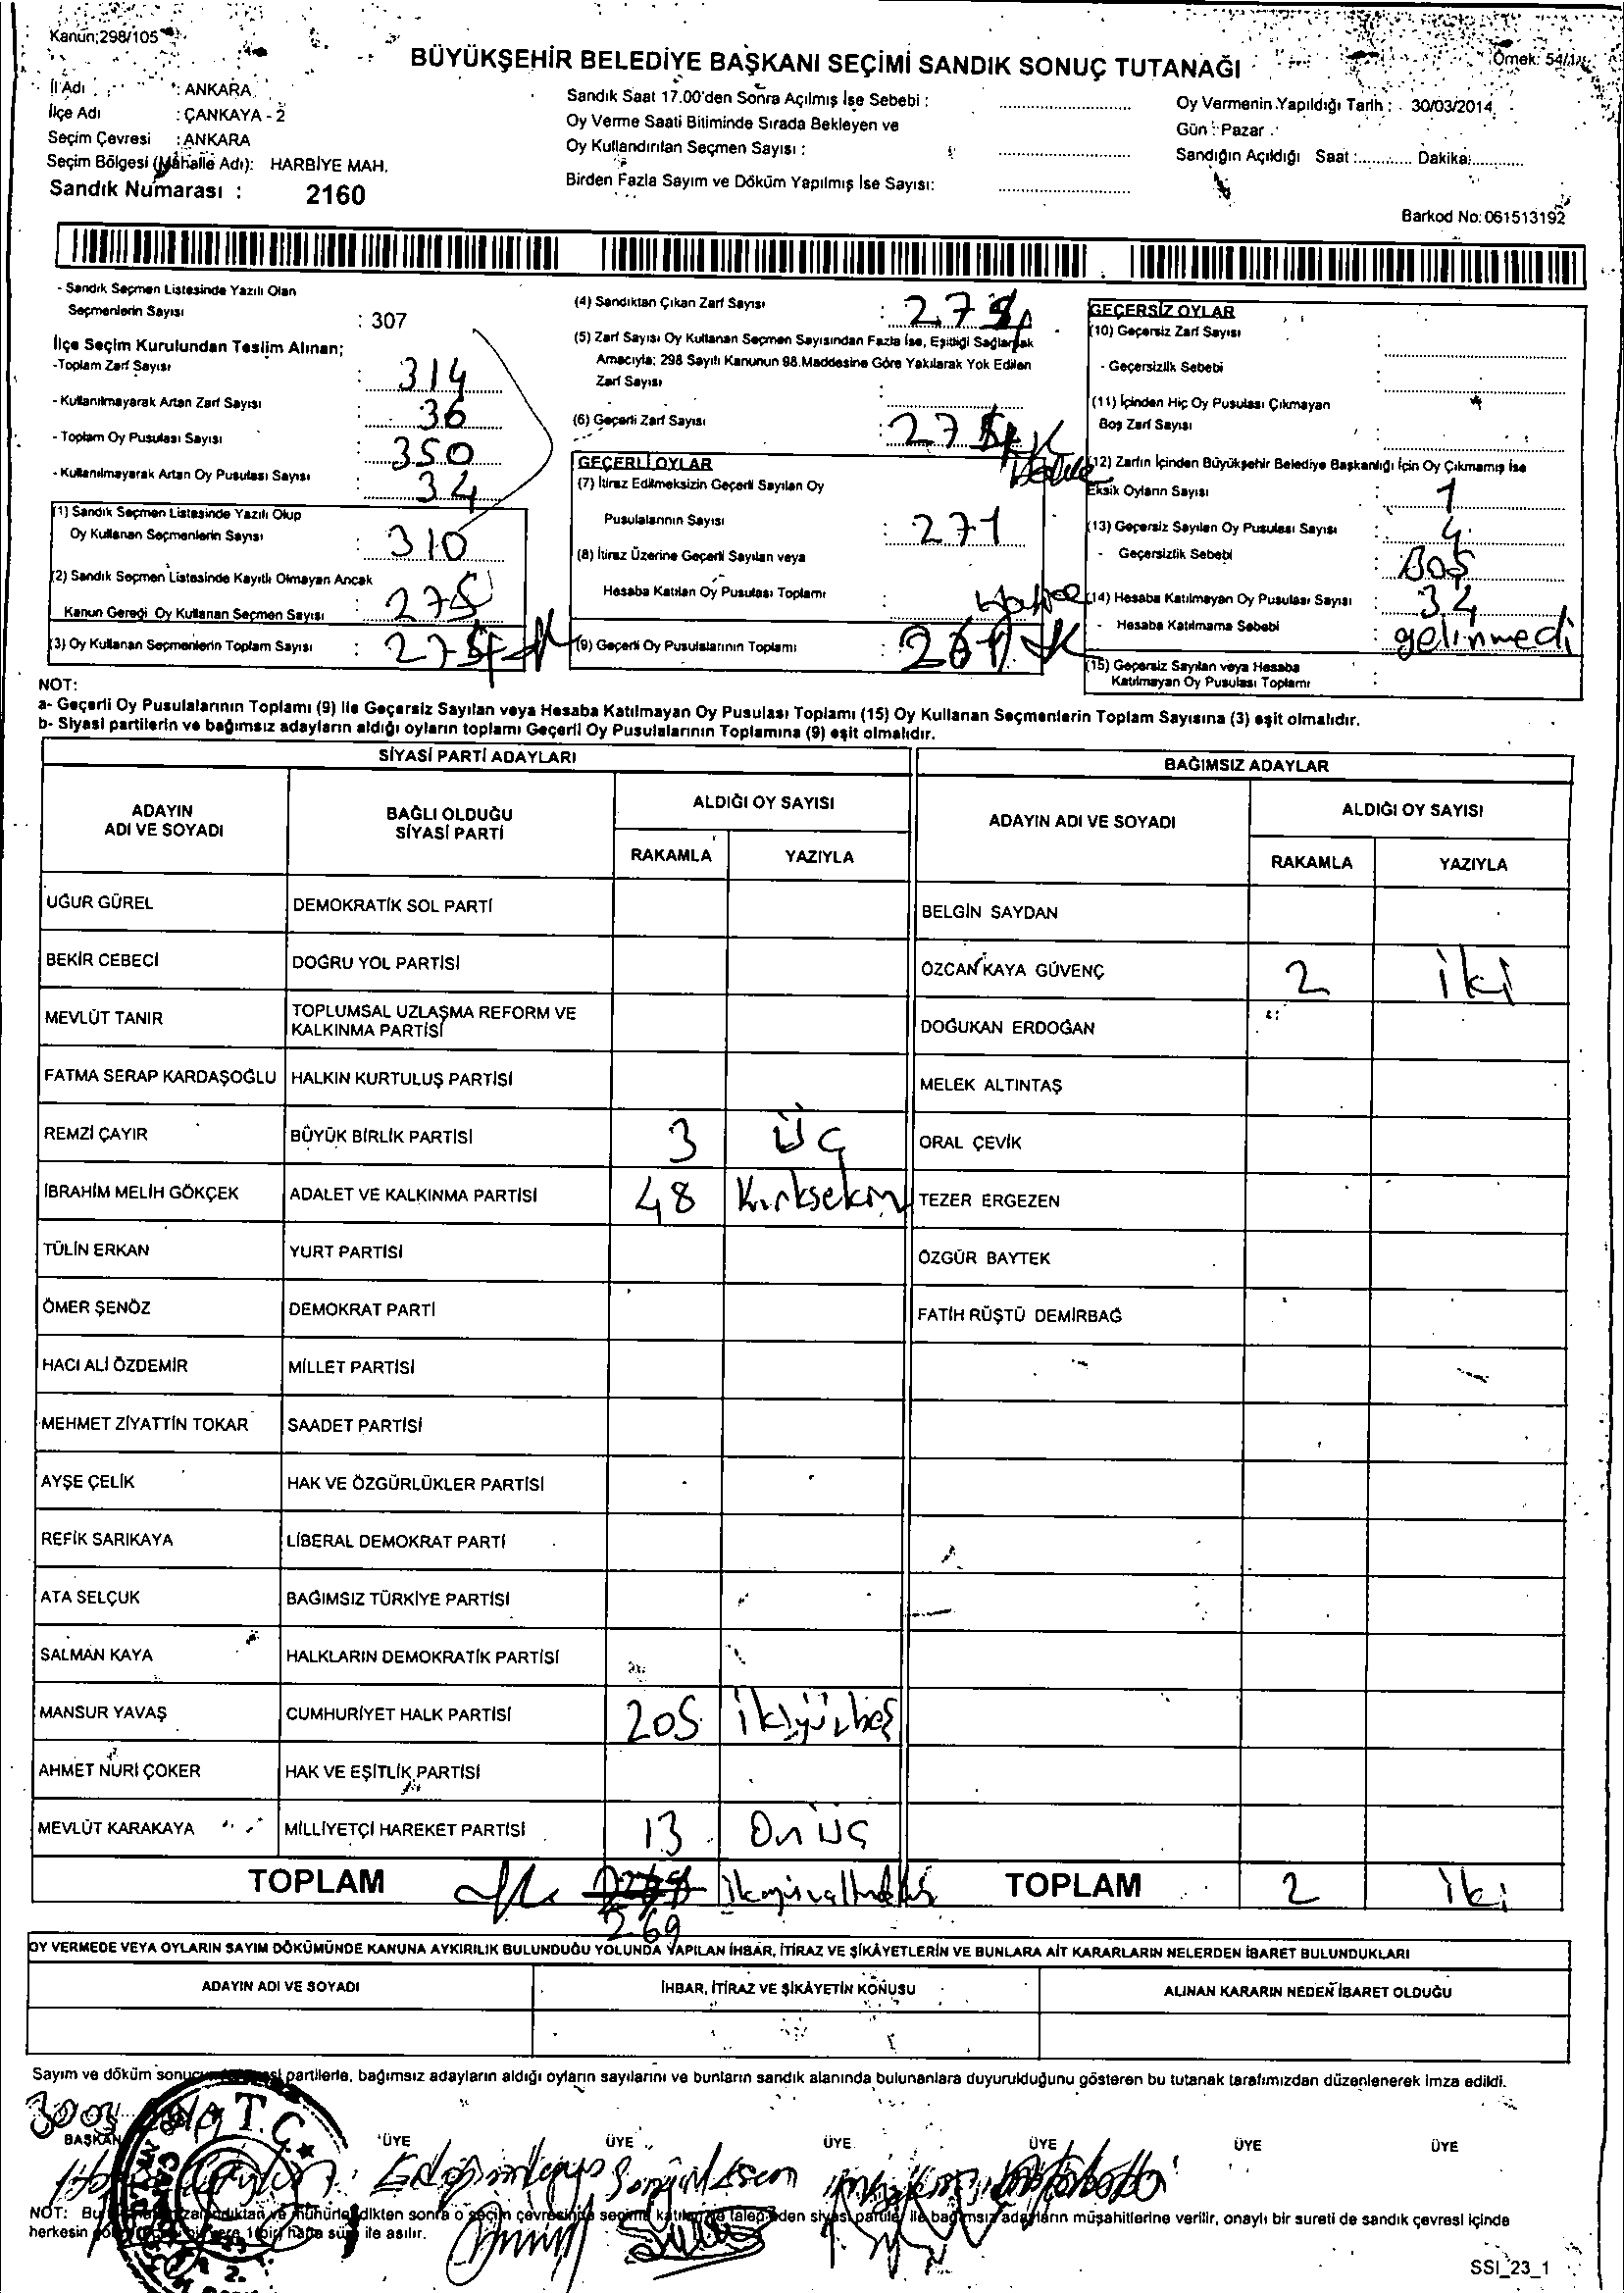 Kanun;298/105
Örnek: 54/1
BÜYÜKŞEHİR BELEDİYE BAŞKANI SEÇİMİ SANDIK SONUÇ TUTANAĞI
İl Adı : ANKARA
İlçe Adı : ÇANKAYA - 2
Seçim Çevresi : ANKARA
Seçim Bölgesi (Mahalle Adı): HARBİYE MAH.
Sandık Numarası : 2160
Sandık Saat 17.00'den Sonra Açılmış İse Sebebi :
Oy Verme Saati Bitiminde Sırada Bekleyen ve
Oy Kullandırılan Seçmen Sayısı :
Birden Fazla Sayım ve Döküm Yapılmış İse Sayısı:
Oy Vermenin Yapıldığı Tarih : 30/03/2014
Gün : Pazar
Sandığın Açıldığı Saat :............ Dakika:............
Barkod No: 061513192
- Sandık Seçmen Listesinde Yazılı Olan
Seçmenlerin Sayısı : 307
İlçe Seçim Kurulundan Teslim Alınan;
-Toplam Zarf Sayısı : 314
- Kullanılmayarak Artan Zarf Sayısı : 36
- Toplam Oy Pusulası Sayısı : 350
- Kullanılmayarak Artan Oy Pusulası Sayısı : 34
(1) Sandık Seçmen Listesinde Yazılı Olup
Oy Kullanan Seçmenlerin Sayısı : 310
(2) Sandık Seçmen Listesinde Kayıtlı Olmayan Ancak
Kanun Gereği Oy Kullanan Seçmen Sayısı : 275
(3) Oy Kullanan Seçmenlerin Toplam Sayısı : 275
(4) Sandıktan Çıkan Zarf Sayısı :
(5) Zarf Sayısı Oy Kullanan Seçmen Sayısından Fazla İse, Eşitliği Sağlamak
Amacıyla; 298 Sayılı Kanunun 98.Maddesine Göre Yakılarak Yok Edilen
Zarf Sayısı :
(6) Geçerli Zarf Sayısı :
GEÇERLİ OYLAR
(7) İtiraz Edilmeksizin Geçerli Sayılan Oy
Pusulalarının Sayısı : 271
(8) İtiraz Üzerine Geçerli Sayılan veya
Hesaba Katılan Oy Pusulası Toplamı :
(9) Geçerli Oy Pusulalarının Toplamı :
GEÇERSİZ OYLAR
(10) Geçersiz Zarf Sayısı :
- Geçersizlik Sebebi :
(11) İçinden Hiç Oy Pusulası Çıkmayan
Boş Zarf Sayısı :
(12) Zarfın İçinden Büyükşehir Belediye Başkanlığı İçin Oy Çıkmamış İse
Eksik Oyların Sayısı : 1
(13) Geçersiz Sayılan Oy Pusulası Sayısı : 4
- Geçersizlik Sebebi : Boş
(14) Hesaba Katılmayan Oy Pusulası Sayısı : 34
- Hesaba Katılmama Sebebi : gelinmedi
(15) Geçersiz Sayılan veya Hesaba
Katılmayan Oy Pusulası Toplamı :
NOT:
a- Geçerli Oy Pusulalarının Toplamı (9) ile Geçersiz Sayılan veya Hesaba Katılmayan Oy Pusulası Toplamı (15) Oy Kullanan Seçmenlerin Toplam Sayısına (3) eşit olmalıdır.
b- Siyasi partilerin ve bağımsız adayların aldığı oyların toplamı Geçerli Oy Pusulalarının Toplamına (9) eşit olmalıdır.
SİYASİ PARTİ ADAYLARI
BAĞIMSIZ ADAYLAR
ADAYIN ADI VE SOYADI
BAĞLI OLDUĞU SİYASİ PARTİ
ALDIĞI OY SAYISI
RAKAMLA YAZIYLA
ADAYIN ADI VE SOYADI
ALDIĞI OY SAYISI
RAKAMLA YAZIYLA
UĞUR GÜREL DEMOKRATİK SOL PARTİ BELGİN SAYDAN
BEKİR CEBECİ DOĞRU YOL PARTİSİ ÖZCAN KAYA GÜVENÇ 2 iki
MEVLÜT TANIR TOPLUMSAL UZLAŞMA REFORM VE KALKINMA PARTİSİ DOĞUKAN ERDOĞAN
FATMA SERAP KARDAŞOĞLU HALKIN KURTULUŞ PARTİSİ MELEK ALTINTAŞ
REMZİ ÇAYIR BÜYÜK BİRLİK PARTİSİ 3 Üç ORAL ÇEVİK
İBRAHİM MELİH GÖKÇEK ADALET VE KALKINMA PARTİSİ 48 Kırksekiz TEZER ERGEZEN
TÜLİN ERKAN YURT PARTİSİ ÖZGÜR BAYTEK
ÖMER ŞENÖZ DEMOKRAT PARTİ FATİH RÜŞTÜ DEMİRBAĞ
HACI ALİ ÖZDEMİR MİLLET PARTİSİ
MEHMET ZİYATTİN TOKAR SAADET PARTİSİ
AYŞE ÇELİK HAK VE ÖZGÜRLÜKLER PARTİSİ
REFİK SARIKAYA LİBERAL DEMOKRAT PARTİ
ATA SELÇUK BAĞIMSIZ TÜRKİYE PARTİSİ
SALMAN KAYA HALKLARIN DEMOKRATİK PARTİSİ
MANSUR YAVAŞ CUMHURİYET HALK PARTİSİ 205 ikiyüzbeş
AHMET NURİ ÇOKER HAK VE EŞİTLİK PARTİSİ
MEVLÜT KARAKAYA MİLLİYETÇİ HAREKET PARTİSİ 13 Onüç
TOPLAM 269 TOPLAM 2 iki
OY VERMEDE VEYA OYLARIN SAYIM DÖKÜMÜNDE KANUNA AYKIRILIK BULUNDUĞU YOLUNDA YAPILAN İHBAR, İTİRAZ VE ŞİKÂYETLERİN VE BUNLARA AİT KARARLARIN NELERDEN İBARET BULUNDUKLARI
ADAYIN ADI VE SOYADI İHBAR, İTİRAZ VE ŞİKÂYETİN KONUSU ALINAN KARARIN NEDEN İBARET OLDUĞU
Sayım ve döküm partilerle, bağımsız adayların aldığı oyların sayılarını ve bunların sandık alanında bulunanlara duyurulduğunu gösteren bu tutanak tarafımızdan düzenlenerek imza edildi.
T.C.
BAŞKAN ÜYE ÜYE ÜYE ÜYE ÜYE ÜYE
NOT: sonra o seçim çevresinde seçime siyasi partiler ile bağımsız adayların müşahitlerine verilir, onaylı bir sureti de sandık çevresi içinde
herkesin hafta süre ile asılır.
SSI_23_1